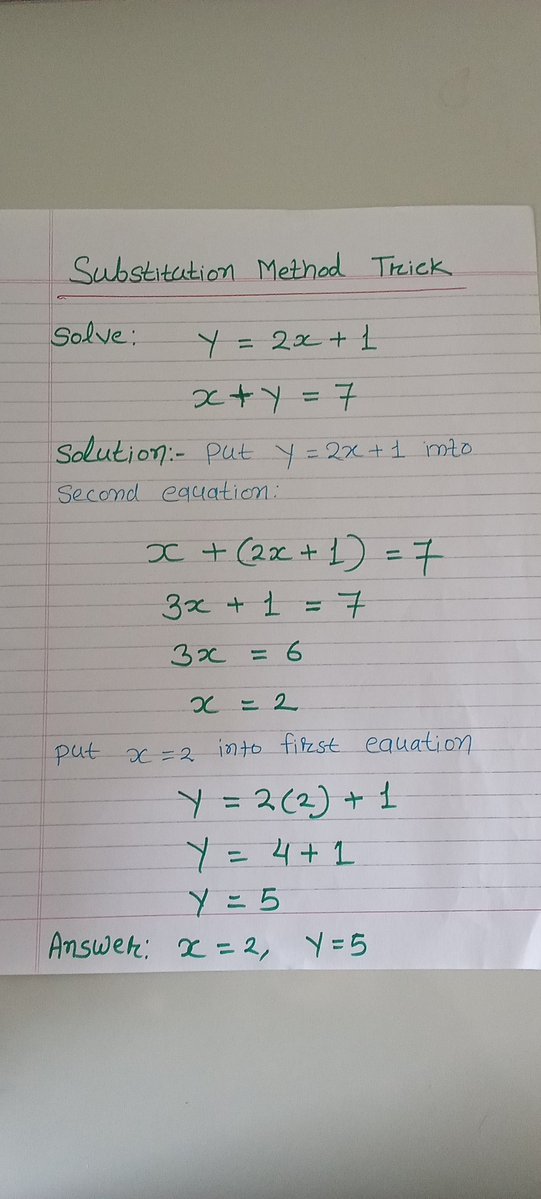 Substitution Method Trick
Solve: y = 2x + 1
x + y = 7
Solution:- put y = 2x + 1 into
Second equation:
x + (2x + 1) = 7
3x + 1 = 7
3x = 6
x = 2
put x = 2 into first equation
y = 2(2) + 1
y = 4 + 1
y = 5
Answer: x = 2, y = 5